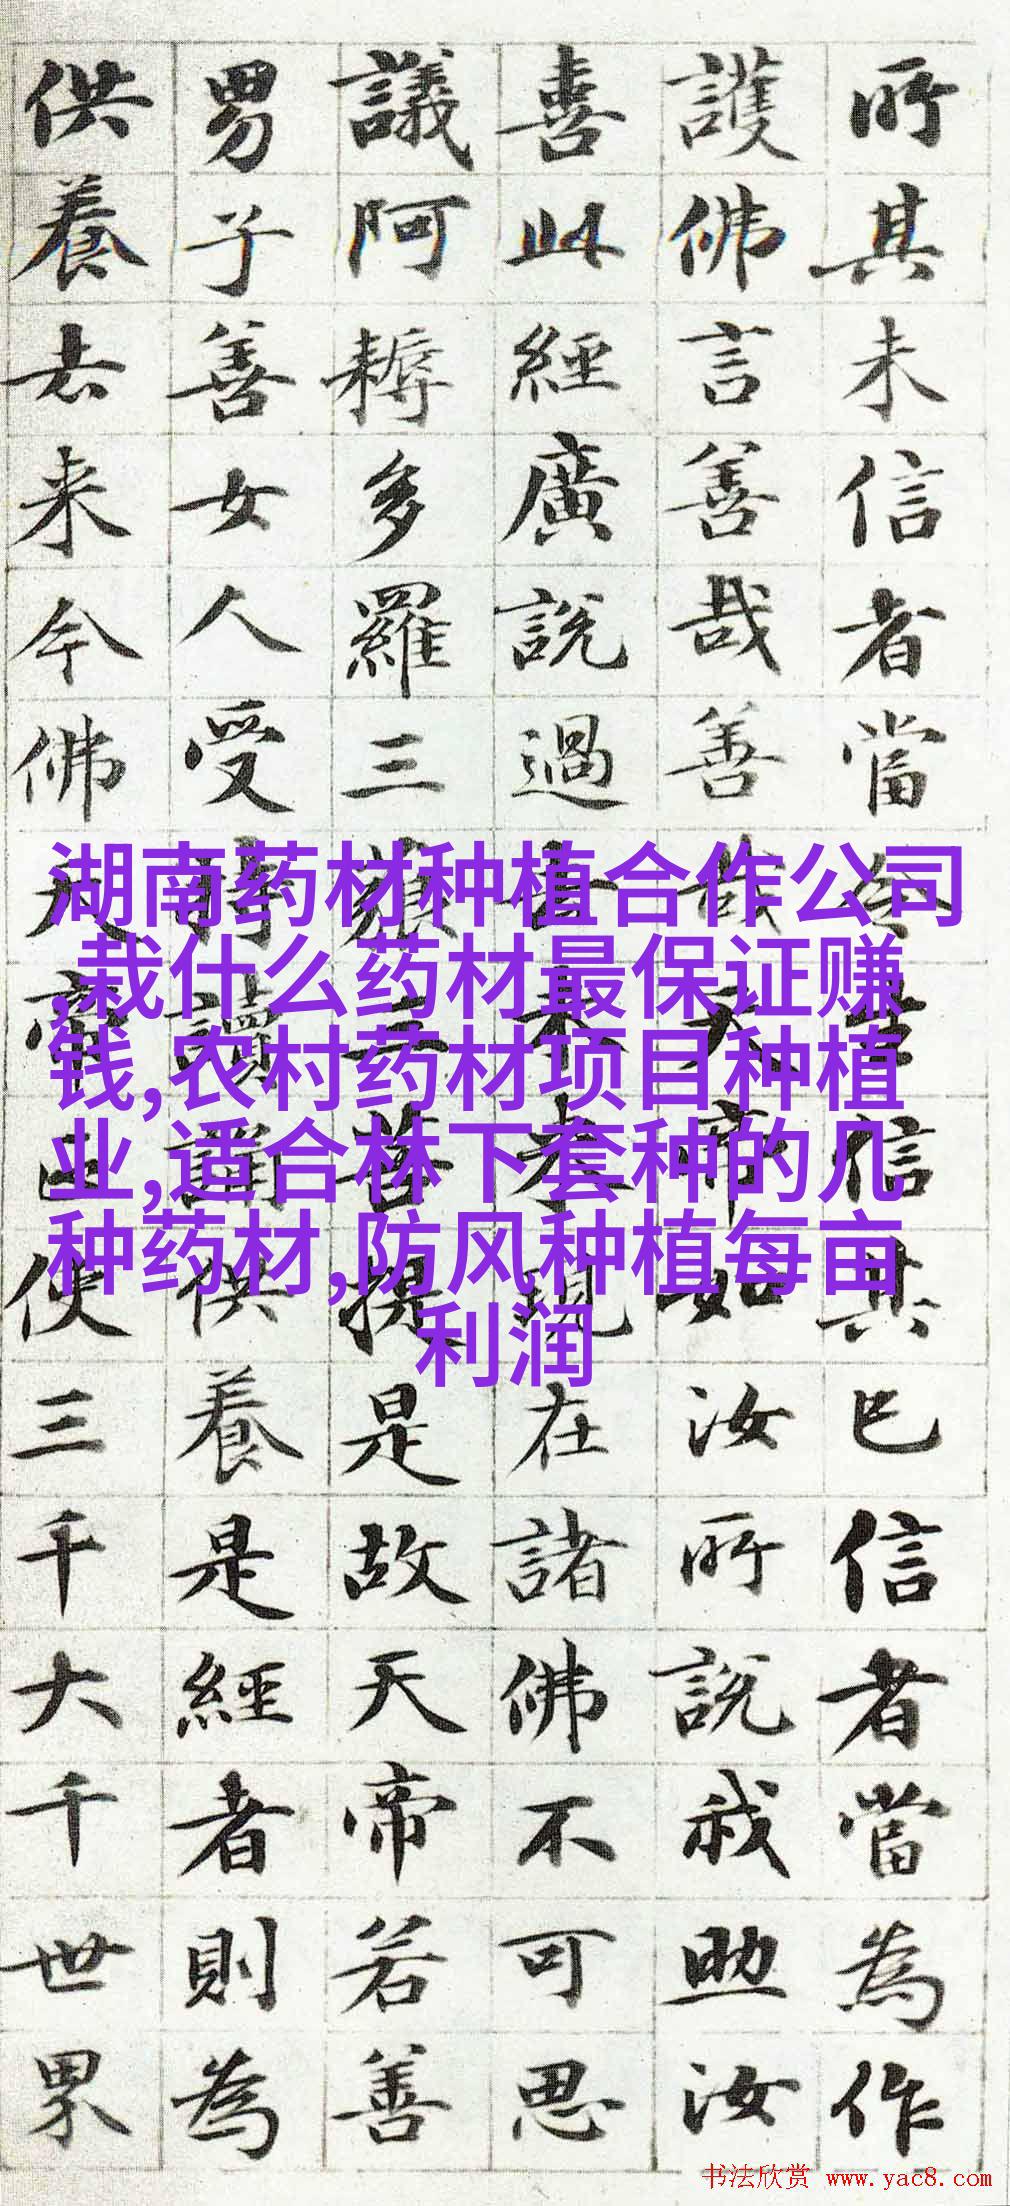 所其未信者當令生信其已信者當為作
護佛言善哉善哉天帝如汝所說我助汝
喜此經廣說過去未来現在諸佛不可思
議阿耨多羅三藐三菩提是故天帝若善
男子善女人受持讀誦供養是經者則為
供養去来今佛天帝正使三千大千世界
湖南药材种植合作公司
,栽什么药材最保证赚
钱,农村药材项目种植
业,适合林下套种的几
种药材,防风种植每亩
利润
书法欣赏 www.yac8.com